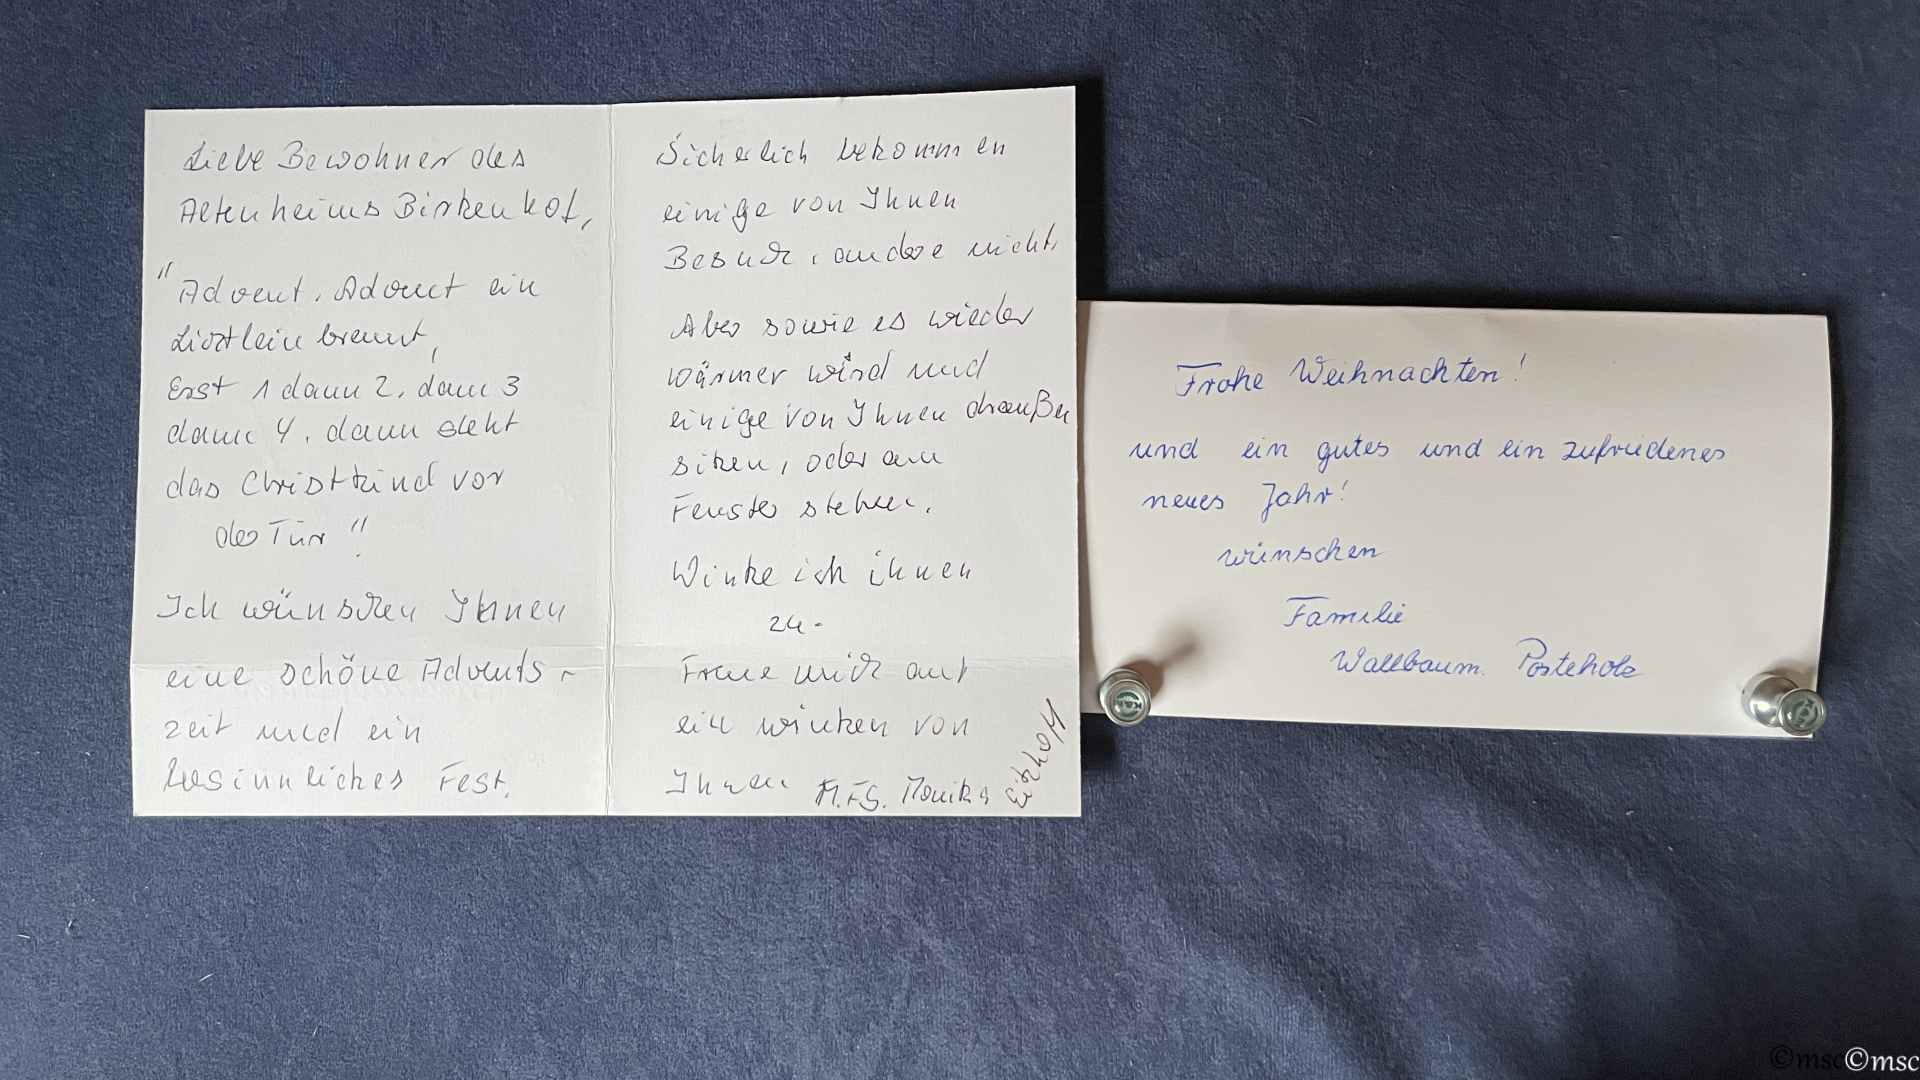 Liebe Bewohner des
Altenheims Birkenhof,
"Advent, Advent ein
Lichtlein brennt,
Erst 1 dann 2, dann 3
dann 4, dann steht
das Christkind vor
der Tür"
Ich wünschen Ihnen
eine schöne Advents-
zeit und ein
besinnliches Fest.
Sicherlich bekommen
einige von Ihnen
Besuch, andere nicht,
Aber sowie es wieder
wärmer wird und
einige von Ihnen draußen
sitzen, oder am
Fenster stehen.
Winke ich ihnen
zu.
Freue mich auf
ein winken von
Ihnen M.FG. Monika
Frohe Weihnachten!
und ein gutes und ein zufriedenes
neues Jahr!
wünschen
Familie
Wallbaum Posteholz
©msc©msc